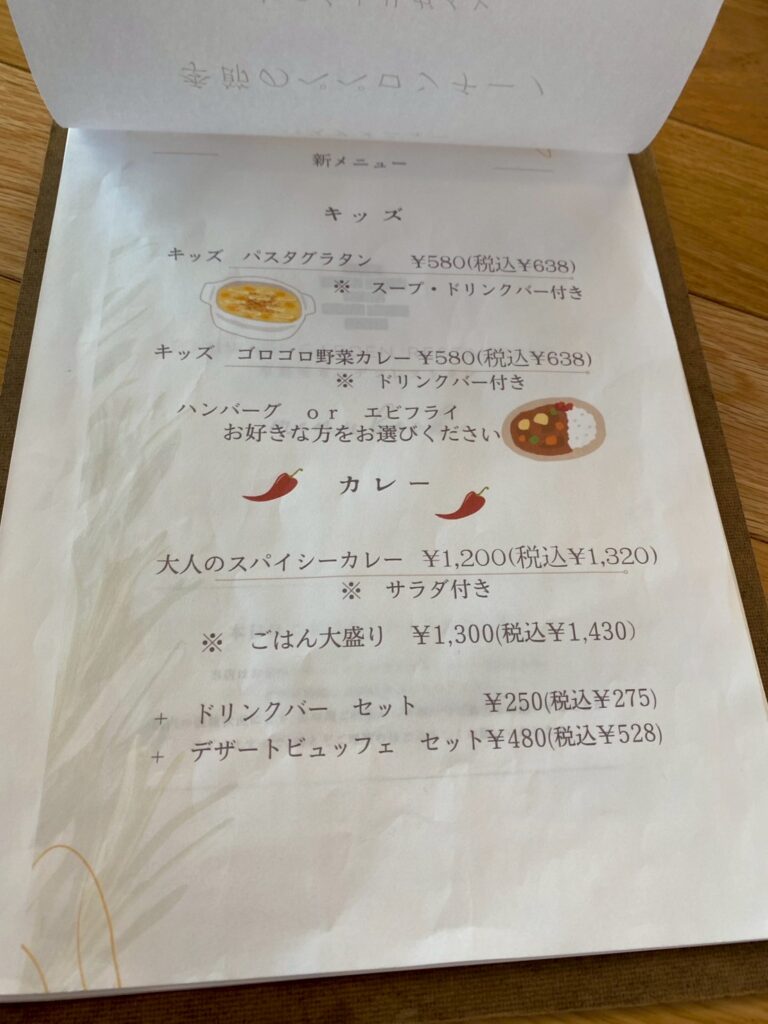 季節のペペロンチーノ
新メニュー
キッズ
キッズ　パスタグラタン　¥580(税込¥638)
※　スープ・ドリンクバー付き
キッズ　ゴロゴロ野菜カレー ¥580(税込¥638)
※　ドリンクバー付き
ハンバーグ　or　エビフライ
お好きな方をお選びください
カレー
大人のスパイシーカレー　¥1,200(税込¥1,320)
※　サラダ付き
※　ごはん大盛り　¥1,300(税込¥1,430)
+　ドリンクバー　セット　¥250(税込¥275)
+　デザートビュッフェ　セット¥480(税込¥528)